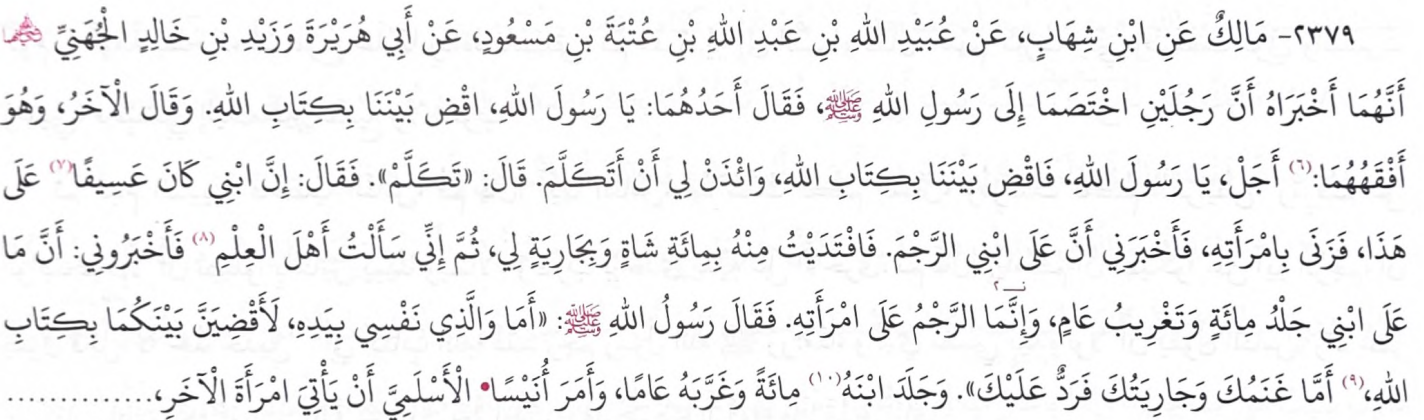 ٢٣٧٩- مَالِكٌ عَنِ ابْنِ شِهَابٍ، عَنْ عُبَيْدِ اللهِ بْنِ عَبْدِ اللهِ بْنِ عُتْبَةَ بْنِ مَسْعُودٍ، عَنْ أَبِي هُرَيْرَةَ وَزَيْدِ بْنِ خَالِدٍ الْجُهَنِيِّ
أَنَّهُمَا أَخْبَرَاهُ أَنَّ رَجُلَيْنِ اخْتَصَمَا إِلَى رَسُولِ اللهِ ﷺ، فَقَالَ أَحَدُهُمَا: يَا رَسُولَ اللهِ، اقْضِ بَيْنَنَا بِكِتَابِ اللهِ. وَقَالَ الْآخَرُ، وَهُوَ
أَفْقَهُهُمَا:(٦) أَجَلْ، يَا رَسُولَ اللهِ، فَاقْضِ بَيْنَنَا بِكِتَابِ اللهِ، وَائْذَنْ لِي أَنْ أَتَكَلَّمَ. قَالَ: «تَكَلَّمْ». فَقَالَ: إِنَّ ابْنِي كَانَ عَسِيفًا(٧) عَلَى
هَذَا، فَزَنَى بِامْرَأَتِهِ، فَأَخْبَرَنِي أَنَّ عَلَى ابْنِي الرَّجْمَ. فَافْتَدَيْتُ مِنْهُ بِمِائَةِ شَاةٍ وَبِجَارِيَةٍ لِي، ثُمَّ إِنِّي سَأَلْتُ أَهْلَ الْعِلْمِ(٨) فَأَخْبَرُونِي: أَنَّ مَا
عَلَى ابْنِي جَلْدُ مِائَةٍ وَتَغْرِيبُ عَامٍ، وَإِنَّمَا الرَّجْمُ عَلَى امْرَأَتِهِ. فَقَالَ رَسُولُ اللهِ ﷺ: «أَمَا وَالَّذِي نَفْسِي بِيَدِهِ، لَأَقْضِيَنَّ بَيْنَكُمَا بِكِتَابِ
اللهِ،(٩) أَمَّا غَنَمُكَ وَجَارِيَتُكَ فَرَدٌّ عَلَيْكَ». وَجَلَدَ ابْنَهُ(١٠) مِائَةً وَغَرَّبَهُ عَامًا، وَأَمَرَ أُنَيْسًا• الْأَسْلَمِيَّ أَنْ يَأْتِيَ امْرَأَةَ الْآخَرِ،..............